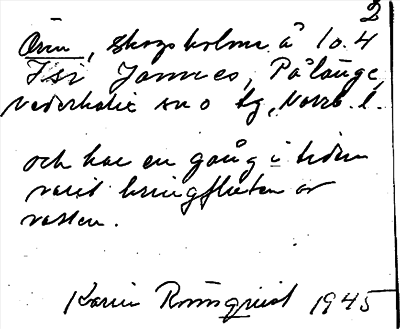 2
Ören, skogsholme å 10.4
Isi Jannes, Pålänge,
Nederkalix sn o tg, Norrb. l.
och har en gång i tiden
varit kringfluten av
vatten.
Karin Rönnqvist 1945